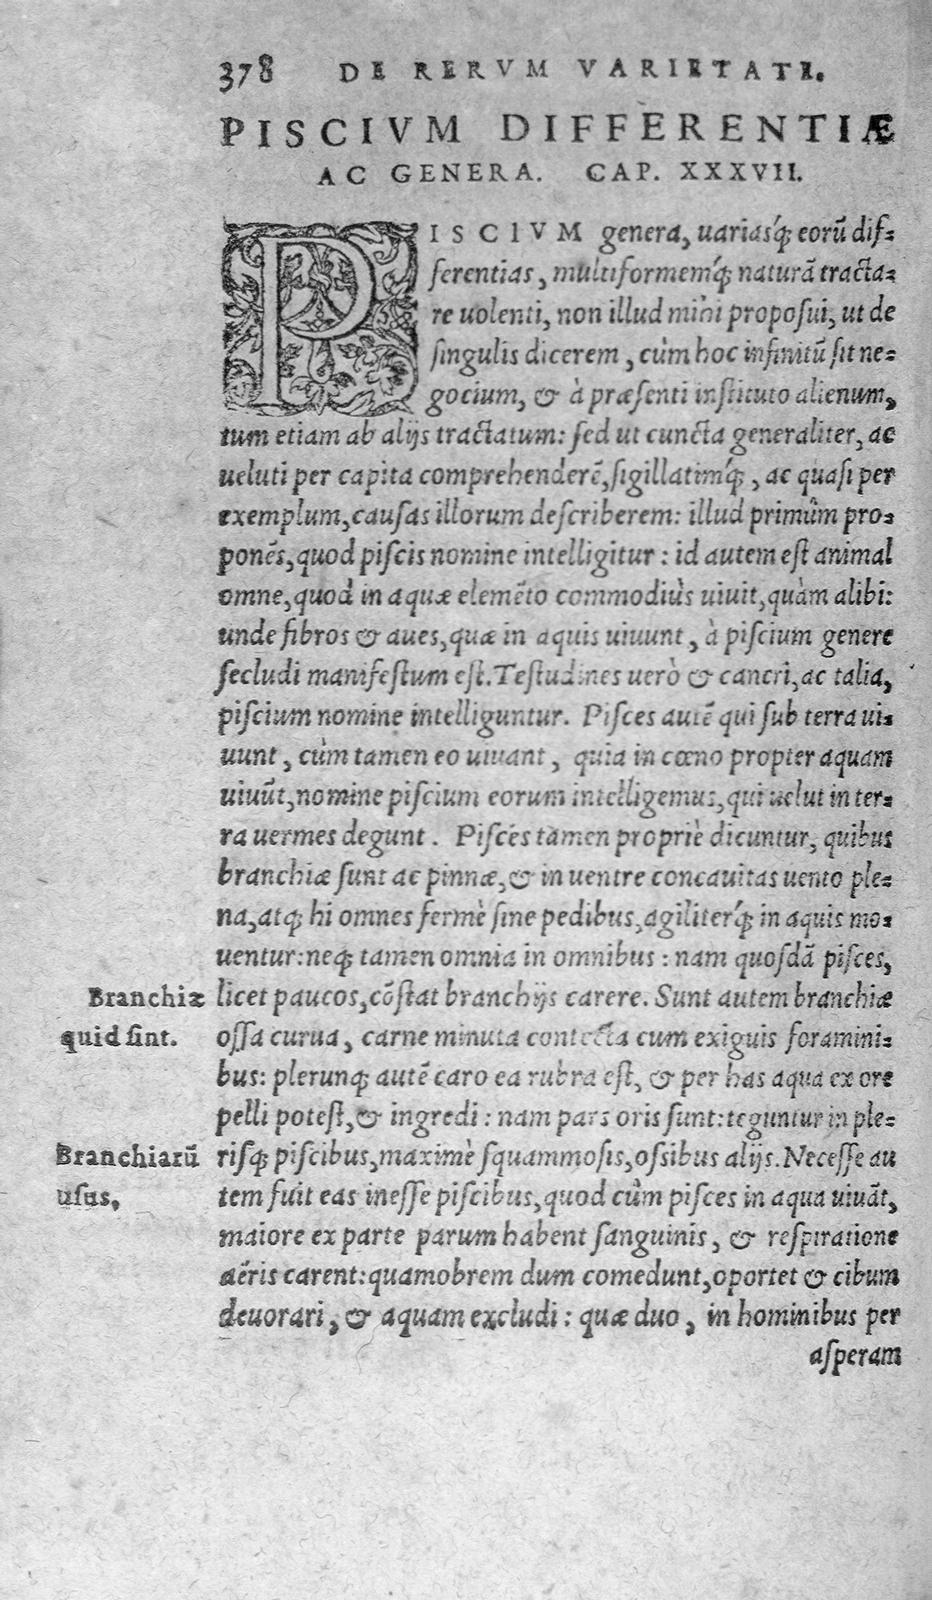 378 DE RERVM VARIETATE.
PISCIVM DIFFERENTIÆ
AC GENERA. CAP. XXXVII.
PISCIVM genera, uariasq́ꝫ eorũ dif-
ferentias, multiformemq́ꝫ naturã tracta-
re uolenti, non illud mihi proposui, ut de
singulis dicerem, cùm hoc infinitũ sit ne-
gocium, & à præsenti instituto alienum,
tum etiam ab alijs tractatum: sed ut cuncta generaliter, ac
ueluti per capita comprehenderẽ, sigillatimq́ꝫ, ac quasi per
exemplum, causas illorum describerem: illud primûm pro-
ponẽs, quod piscis nomine intelligitur: id autem est animal
omne, quod in aquæ elemẽto commodiùs uiuit, quàm alibi:
unde fibros & aues, quæ in aquis uiuunt, à piscium genere
secludi manifestum est. Testudines uerò & cancri, ac talia,
piscium nomine intelliguntur. Pisces autẽ qui sub terra ui-
uunt, cùm tamen eo uiuant, quia in cœno propter aquam
uiuũt, nomine piscium eorum intelligemus, qui uelut in ter-
ra uermes degunt. Pisces tamen propriè dicuntur, quibus
branchiæ sunt ac pinnæ, & in uentre concauitas uento ple-
na, atqꝫ hi omnes fermè sine pedibus, agiliterq́ꝫ in aquis mo-
uentur: neqꝫ tamen omnia in omnibus: nam quosdã pisces,
Branchiæ licet paucos, cõstat branchijs carere. Sunt autem branchiæ
quid sint. ossa curua, carne minuta contecta cum exiguis foramini-
bus: plerunqꝫ autẽ caro ea rubra est, & per has aqua ex ore
pelli potest, & ingredi: nam pars oris sunt: teguntur in ple-
Branchiarũ risqꝫ piscibus, maximè squammosis, ossibus alijs. Necesse au
usus. tem fuit eas inesse piscibus, quod cûm pisces in aqua uiuãt,
maiore ex parte parum habent sanguinis, & respiratione
aëris carent: quamobrem dum comedunt, oportet & cibum
deuorari, & aquam excludi: quæ duo, in hominibus per
asperam